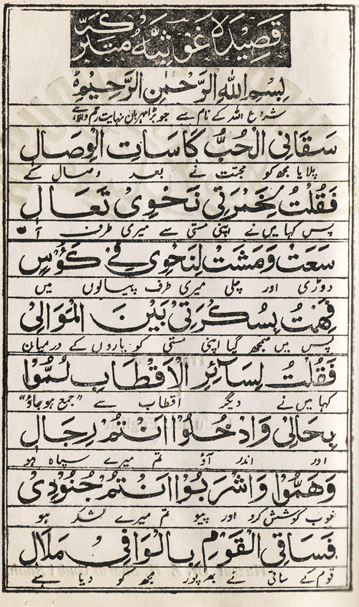 قصیدہ غوثیہ متبرکہ
بِسْمِ اللهِ الرَّحْمٰنِ الرَّحِيْمِ
شروع اللہ کے نام سے جو بڑا مہربان نہایت رحم والا ہے
سَقَانِي الْحُبُّ كَاسَاتِ الْوِصَالِ
پلایا مجھ کو محبت نے بعد وصال کے
فَقُلْتُ لِخَمْرَتِي نَحْوِي تَعَالِ
پس کہا میں نے اپنی مستی سے میری طرف آ
سَعَتْ وَمَشَتْ لِنَحْوِي فِي كُؤُسٍ
دوڑی اور چلی میری طرف پیالوں میں
فَهِمْتُ بِسُكْرَتِي بَيْنَ الْمَوَالِي
پس میں سمجھ گیا اپنی مستی کو یاروں کے درمیان
فَقُلْتُ لِسَآئِرِ الْاَقْطَابِ لُمُّوْا
کہا میں نے دیگر اقطاب سے "جمع ہو جاؤ"
بِحَالِي وَادْخُلُوْا اَنْتُمْ رِجَالِ
اور اندر آؤ تم میرے سپاہ ہو
وَهَمُّوْا وَاشْرَبُوْا اَنْتُمْ جُنُوْدِي
خوب کوشش کرو اور پیو تم میرے لشکر ہو
فَسَاقِي الْقَوْمِ بِالْوَافِي مَلَالِ
قوم کے ساقی نے بھرپور مجھ کو دیا ہے